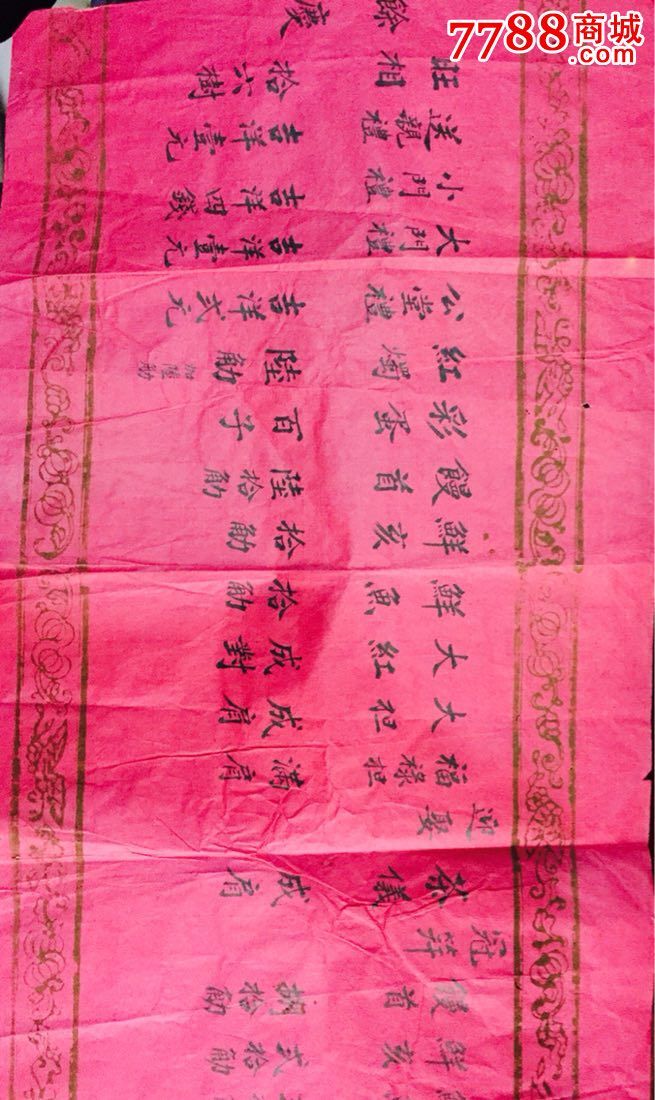 7788商城
鮮亥 弍拾觔
饅首 捌拾觔
冠笄
茶儀 成肩
迎娶
福祿担 滿肩
大担 成肩
大紅 成對
鮮魚 拾觔
鮮亥 拾觔
饅首 陸拾觔
彩蛋 百子
紅燭 陸觔
公堂禮 吉洋弍元
大門禮 吉洋壹元
小門禮 吉洋四錢
送親禮 吉洋壹元
旺相 拾六樹
餘慶